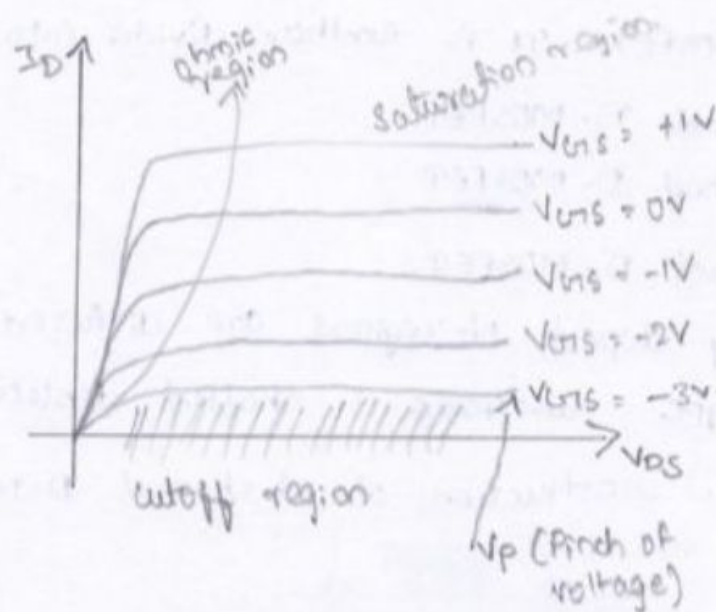 I_D
Ohmic
region
Saturation region
V_GS = +1V
V_GS = 0V
V_GS = -1V
V_GS = -2V
V_GS = -3V
V_DS
cutoff region
V_P (Pinch of
voltage)